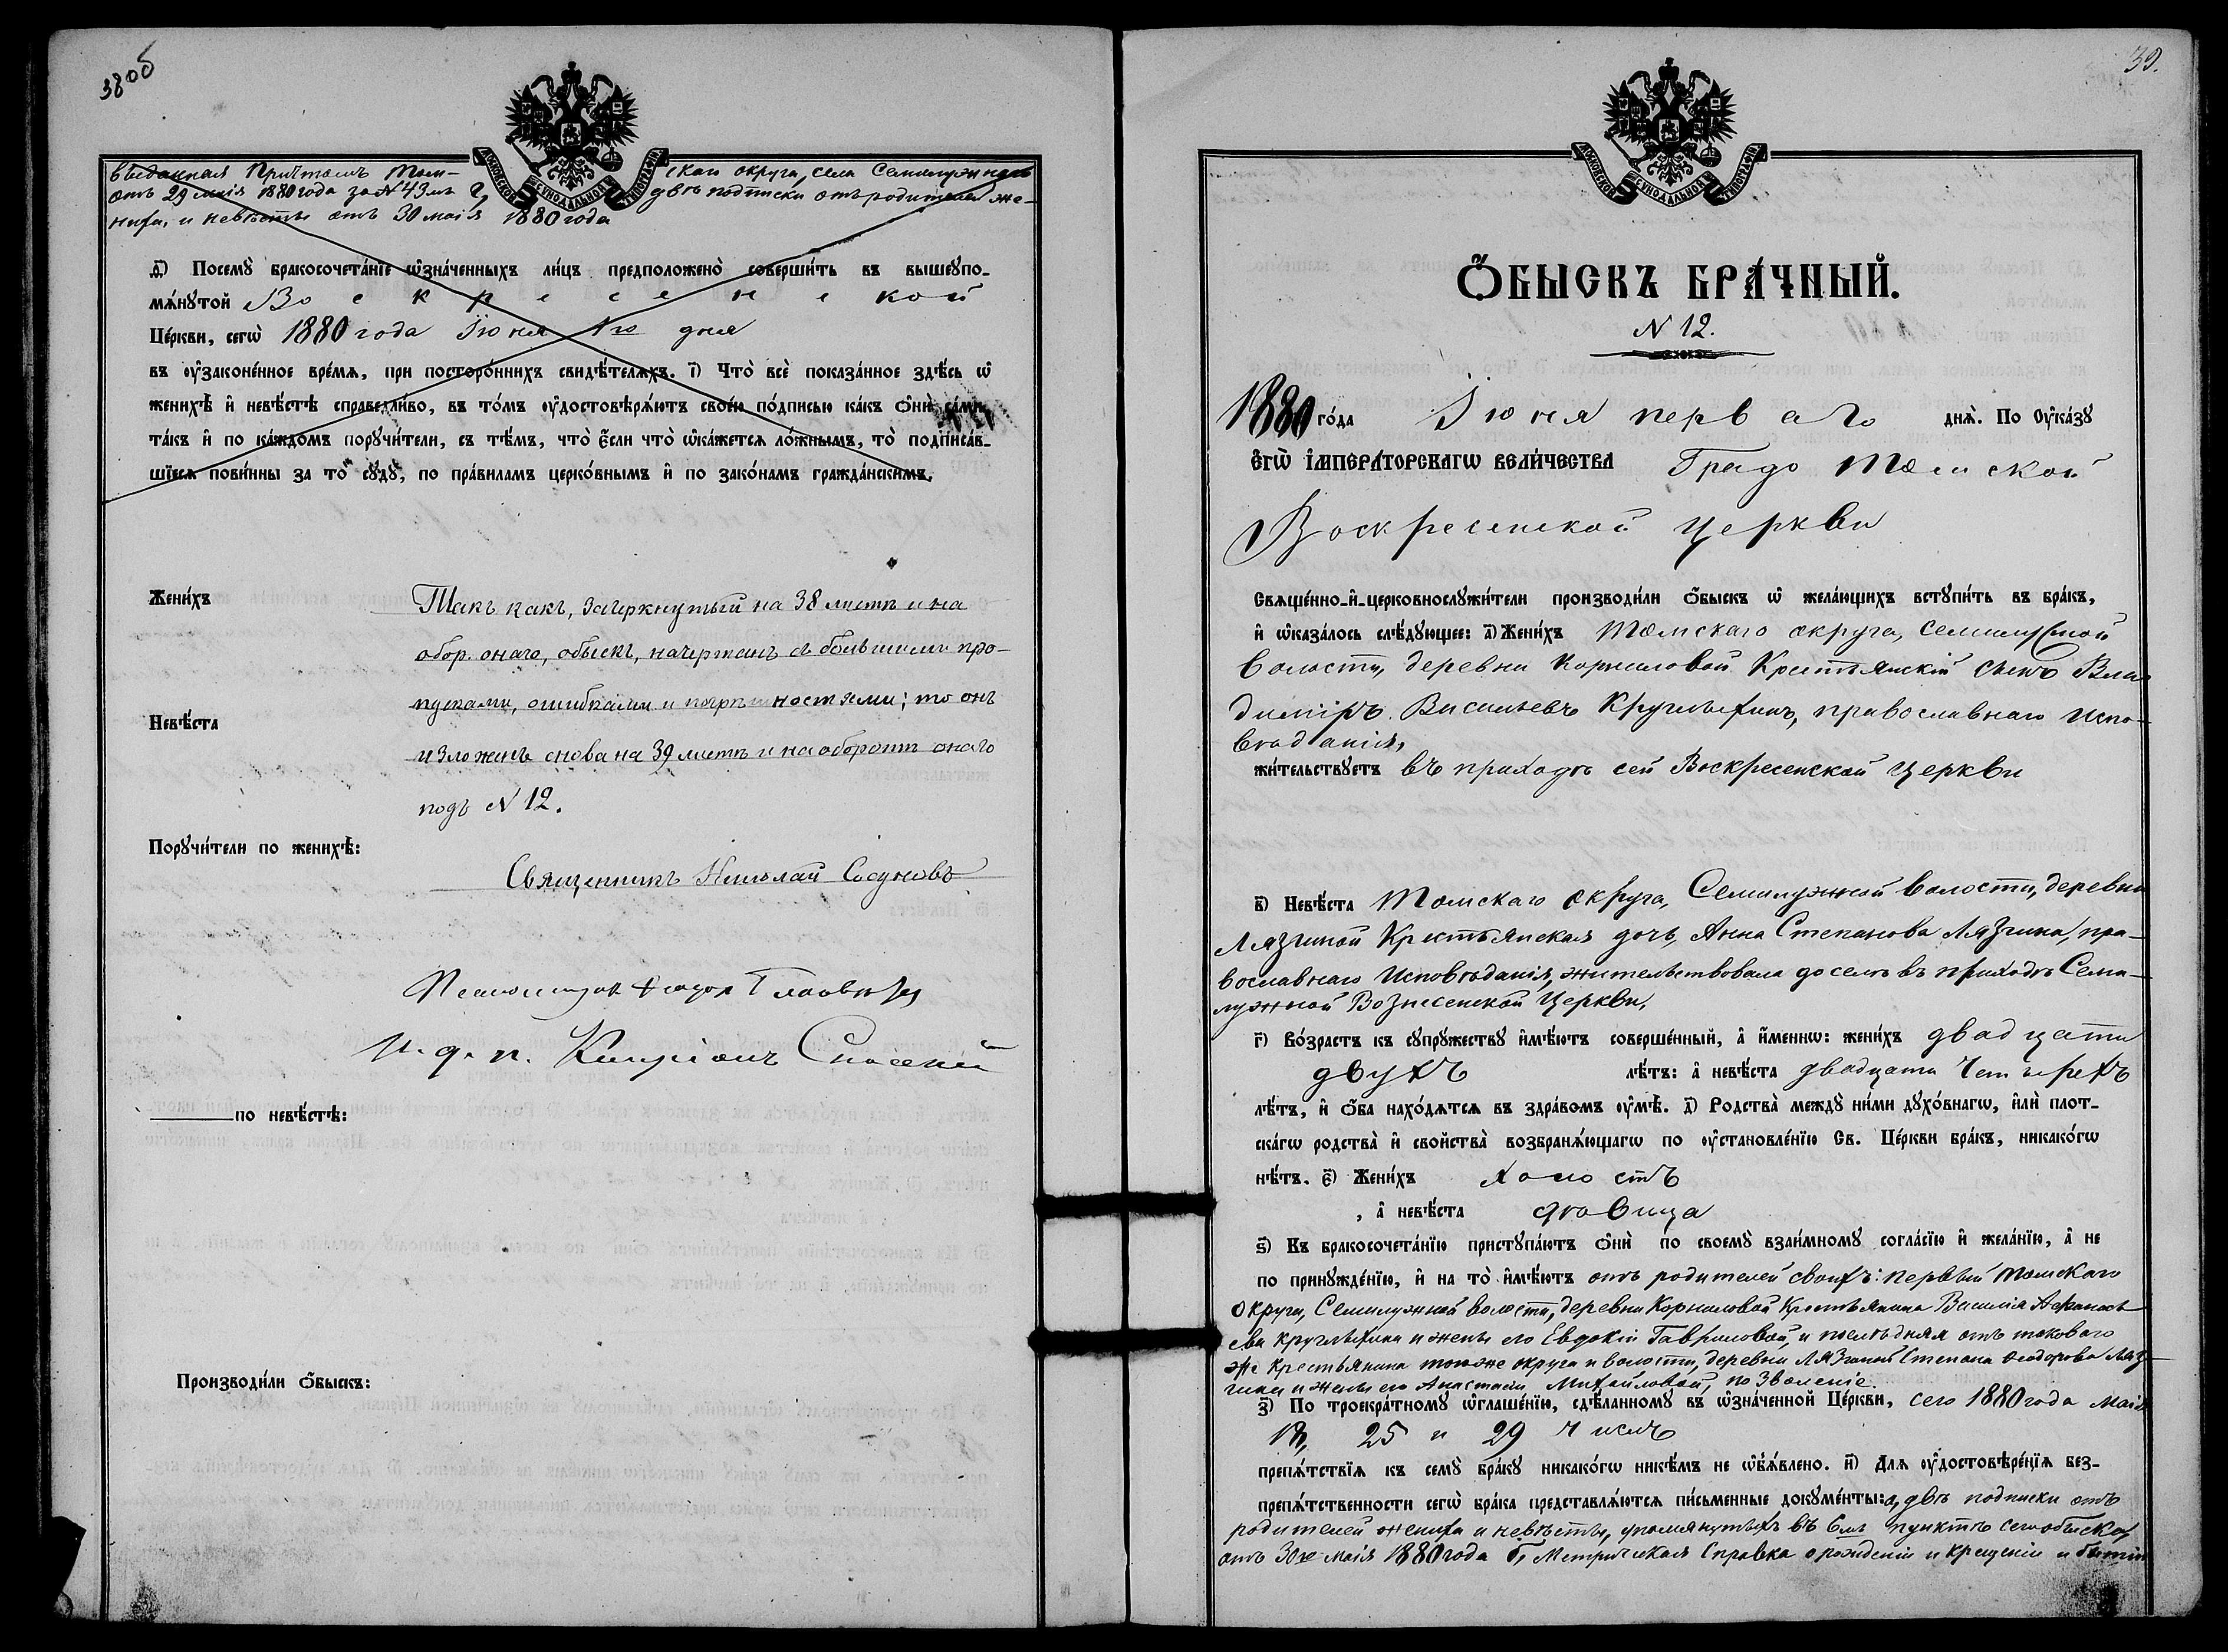 38об
выданная Причтомъ Том-
скаго округа, села Семилужнаго
отъ 29 маія 1880 года за N 43мъ
двѣ подписки отъ родителей же-
ниха, и невѣсты отъ 30 маія 1880 года
МОСКОВСКОЙ СѴНОДАЛЬНОЙ ТИПОГРАФІИ
д҃) Посемꙋ̀ бракосочета́нїе ѡ҆зна́ченныхъ ли́цъ предположено̀ соверши́ть въ вышеꙋпо-
мѧ́нꙋтой Воскресенской
Це́ркви, сегѡ̀ 1880 года Іюня 1го дня
въ ᲂу҆законе́нное вре́мѧ, при посторо́ннихъ свидѣ́телѧхъ. і҃) Что̀ всѐ пока́занное здѣ́сь ѡ҆
женихѣ̀ и҆ невѣ́стѣ справедли́во, въ то́мъ ᲂу҆достовѣрѧ́ютъ свое́ю по́дписью ка́къ ѻ҆нѝ са́ми,
та́къ и҆ по ка́ждомъ порꙋчи́тели, съ тѣ́мъ, что̀ є҆́сли что̀ ѡ҆ка́жетсѧ ло́жнымъ, то̀ подписа́в-
шїесѧ пови́нны за то̀ сꙋдꙋ̀, по пра́виламъ церко́внымъ и҆ по зако́намъ гражда́нскимъ.
Жени́хъ
Такъ какъ, зачеркнутый на 38 листѣ и на
обор. онаго, обыскъ, начертанъ съ большими про-
пусками, ошибками и погрѣшностями; то онъ
Невѣ́ста
изложенъ снова на 39 листѣ и на оборотѣ онаго
подъ N 12.
Порꙋчи́тели по женихѣ̀:
Священникъ Николай Сосуновъ
Псаломщик
И. д. п. Спасский
по невѣ́стѣ:
Производи́ли ѻ҆́быскъ:
39.
МОСКОВСКОЙ СѴНОДАЛЬНОЙ ТИПОГРАФІИ
Ѻ҆́БЫСКЪ БРА́ЧНЫЙ.
N 12.
1880 го́да Іюня перваго днѧ̀. По Оу҆ка́зꙋ
Е҆ГѠ̀ И҆МПЕРА́ТОРСКАГѠ ВЕЛИ́ЧЕСТВА Градо Томской
Воскресенской церкви
Свѧще́нно-и҆-церковнослꙋжи́тели производи́ли ѻ҆́быскъ ѡ҆ жела́ющихъ встꙋпи́ть въ бра́къ,
и҆ ѡ҆каза́лось слѣ́дꙋющее: а҃) Жени́хъ Томскаго округа, Семилужной
волости, деревни Корниловой Крестьянскій сынъ Вла-
диміръ Васильевъ Круглыхинъ, православнаго испо-
вѣданія,
жи́тельствꙋетъ въ приходѣ сей Воскресенской церкви
в҃) Невѣ́ста Томскаго округа, Семилужной волости, деревни
Лязгиной Крестьянская дочь, Анна Степанова Лязгина, пра-
вославнаго Исповѣданія, жительствовала доселѣ въ приходѣ Семи-
лужной Вознесенской Церкви,
г҃) Во́зрастъ къ сꙋпрꙋ́жествꙋ и҆мѣ́ютъ соверше́нный, а҆ и҆́меннѡ: жени́хъ двадцати
двухъ лѣ́тъ: а҆ невѣ́ста двадцати четырехъ
лѣ́тъ, и҆ ѻ҆́ба нахо́дѧтсѧ въ здра́вомъ ᲂу҆мѣ̀. д҃) Родства̀ междꙋ̀ ни́ми дꙋхо́внагѡ, и҆лѝ плот-
ска́гѡ родства̀ и҆ свойства̀ возбранѧ́ющагѡ по ᲂу҆становле́нїю Св. Це́ркви бра́къ, никако́гѡ
нѣ́тъ. є҃) Жени́хъ холостъ
, а҆ невѣ́ста дѣвица
ѕ҃) Къ бракосочета́нїю пристꙋпа́ютъ ѻ҆нѝ по своемꙋ̀ взаи́мномꙋ согла́сїю и҆ жела́нїю, а҆ не
по принꙋжде́нїю, и҆ на то̀ и҆мѣ́ютъ отъ родителей своихъ: первый Томскаго
округа, Семилужной волости, деревни Корниловой Крестьянина Василія Афанась-
ева Круглыхина и жены его Евдокіи Гавриловой, и послѣдняя отъ таковаго
же Крестьянина того же округа и волости, деревни Лязгиной Степана Ѳеодорова Ляз-
гина и жены его Анастасіи Михайловой, позволеніе.
з҃) По троекра́тномꙋ ѡ҆глаше́нїю, сдѣ́ланномꙋ въ ѡ҆зна́ченной Це́ркви, сего 1880 года маія
18, 25 и 29 числъ
препѧ́тствїѧ къ семꙋ̀ бра́кꙋ никако́гѡ никѣ́мъ не ѡ҆б̾ѧ́влено. и҃) Длѧ ᲂу҆достовѣре́нїѧ без-
препѧ́тственности сегѡ̀ бра́ка представлѧ́ютсѧ пи́сьменные докꙋме́нты: а, двѣ подписки отъ
родителей жениха и невѣсты, упомянутыхъ въ 6мъ пунктѣ сего обыска,
отъ 30го маія 1880 года б, Метрическая Справка о рожденіи и крещеніи и бытіи